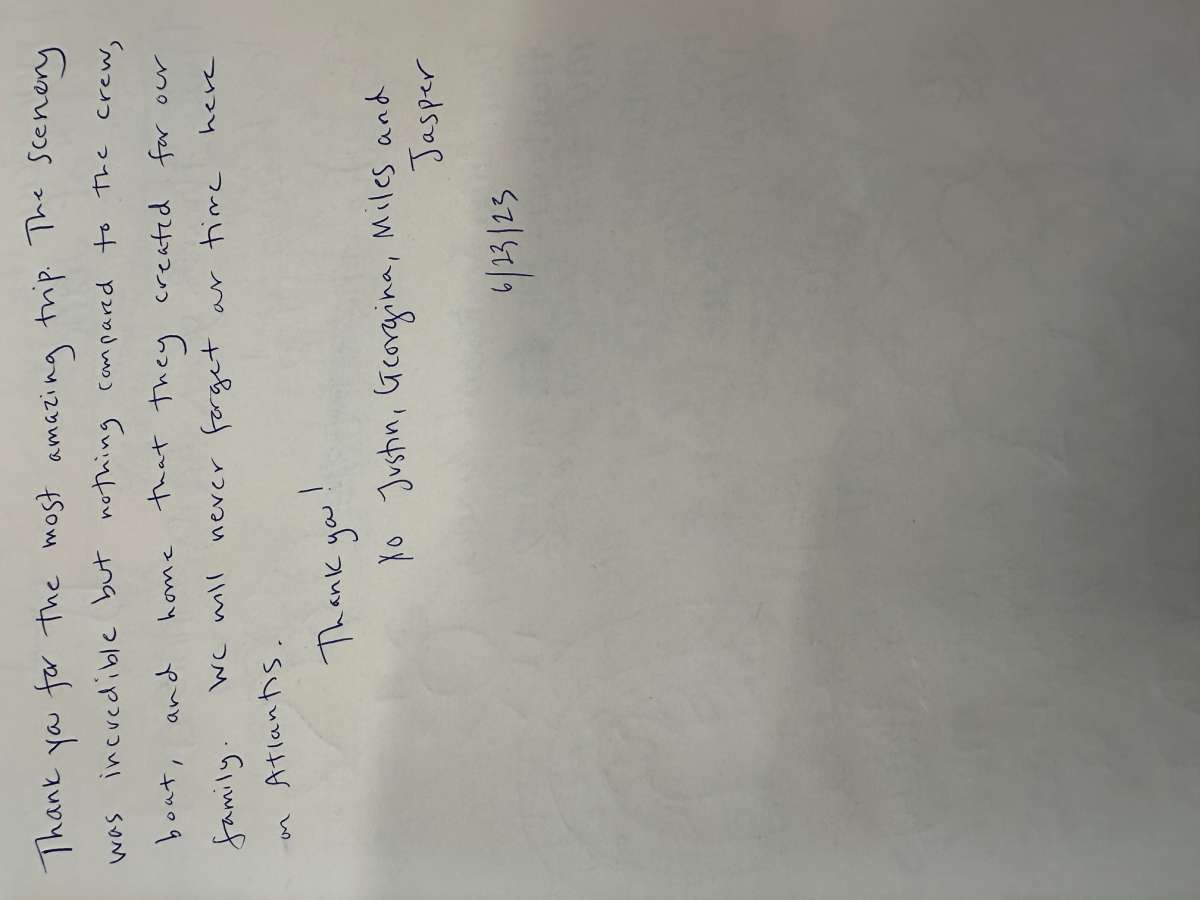 Thank you for the most amazing trip. The scenery
was incredible but nothing compared to the crew,
boat, and home that they created for our
family. We will never forget our time here
on Atlantis.
Thank you!
XO Justin, Georgina, Miles and
Jasper
6/23/23